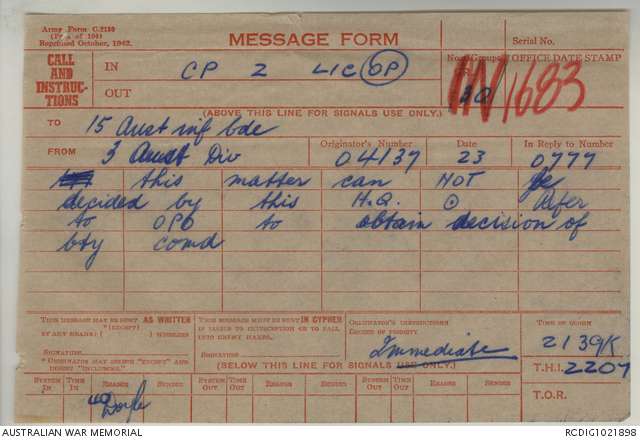 Army Form C.2136
Reprinted October, 1942.
MESSAGE FORM
Serial No.
CALL AND INSTRUC-TIONS
IN
CP 2 LIC OP
No. of Groups
OFFICE DATE STAMP
IN 1683
OUT
(ABOVE THIS LINE FOR SIGNALS USE ONLY.)
TO
15 Aust inf bde
FROM
3 Aust Div
Originator's Number
04137
Date
23
In Reply to Number
0777
this matter can NOT be
decided by this H.Q. ⊙ Refer
to OPO to obtain decision of
bty comd
THIS MESSAGE MAY BE SENT AS WRITTEN
(EXCEPT)
BY ANY MEANS ( ) WIRELESS
SIGNATURE
* ORIGINATOR MAY DELETE "EXCEPT" AND INSERT "INCLUDING."
THIS MESSAGE MUST BE SENT IN CYPHER
IF LIABLE TO INTERCEPTION OR TO FALL INTO ENEMY HANDS.
SIGNATURE
ORIGINATOR'S INSTRUCTIONS
DEGREE OF PRIORITY
Immediate
TIME OF ORIGIN
2139K
(BELOW THIS LINE FOR SIGNALS USE ONLY.)
T.H.I. 2207
SYSTEM IN
TIME IN
READER
SENDER
SYSTEM OUT
TIME OUT
READER
SENDER
SYSTEM OUT
TIME OUT
READER
SENDER
T.O.R.
Doyle
AUSTRALIAN WAR MEMORIAL
RCDIG1021898